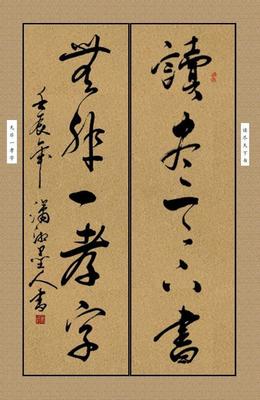 读尽天下书
讀尽天下書
無非一孝字
壬辰年 瀟湘墨人書
无非一孝字